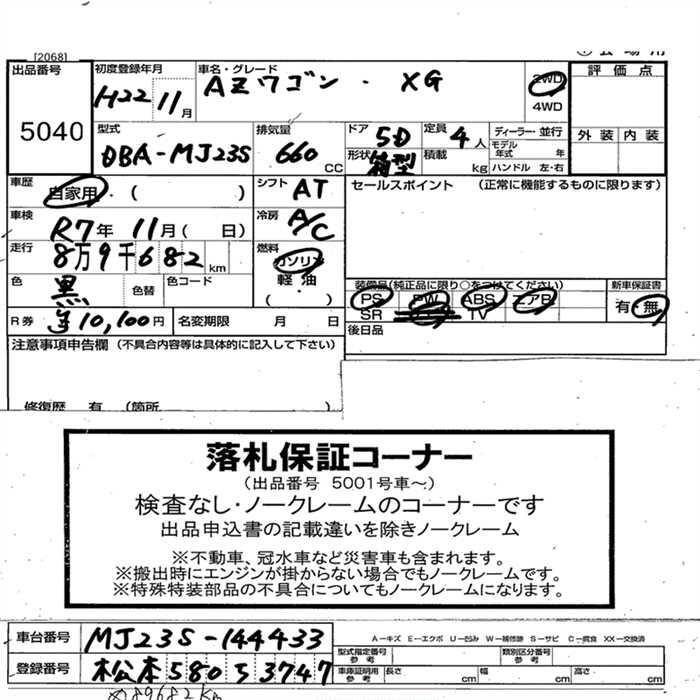 [2068]
出品番号
5040
初度登録年月
H22 11月
車名・グレード
AZワゴン・XG
2WD
4WD
評価点
外装 内装
型式
DBA-MJ23S
排気量
660 CC
ドア 5D
定員 4人
形状 箱型
積載 kg
ディーラー・並行
モデル年式 年
ハンドル 左・右
車歴
自家用・( )
シフト AT
セールスポイント (正常に機能するものに限ります)
車検
R7年 11月( 日)
冷房 A/C
走行
8万9千682 km
燃料
ガソリン
軽油
・( )
色
黒
色替
色コード
装備品(純正品に限り○をつけてください)
PS PW ABS エアB
SR TV
新車保証書
有・無
R券 ¥10,100円
名変期限 月 日
後日品
注意事項申告欄 (不具合内容等は具体的に記入して下さい)
修復歴 有 (箇所 )
落札保証コーナー
(出品番号 5001号車~)
検査なし・ノークレームのコーナーです
出品申込書の記載違いを除きノークレーム
※不動車、冠水車など災害車も含まれます。
※搬出時にエンジンが掛からない場合でもノークレームです。
※特殊特装部品の不具合についてもノークレームになります。
車台番号 MJ23S-144433
A-キズ E-エクボ U-凹み W-補修跡 S-サビ C-腐食 XX-交換済
型式指定番号 参考
類別区分番号 参考
登録番号 松本580 う 3747
車庫証明用 参考
長さ cm 幅 cm 高さ cm
※89682km